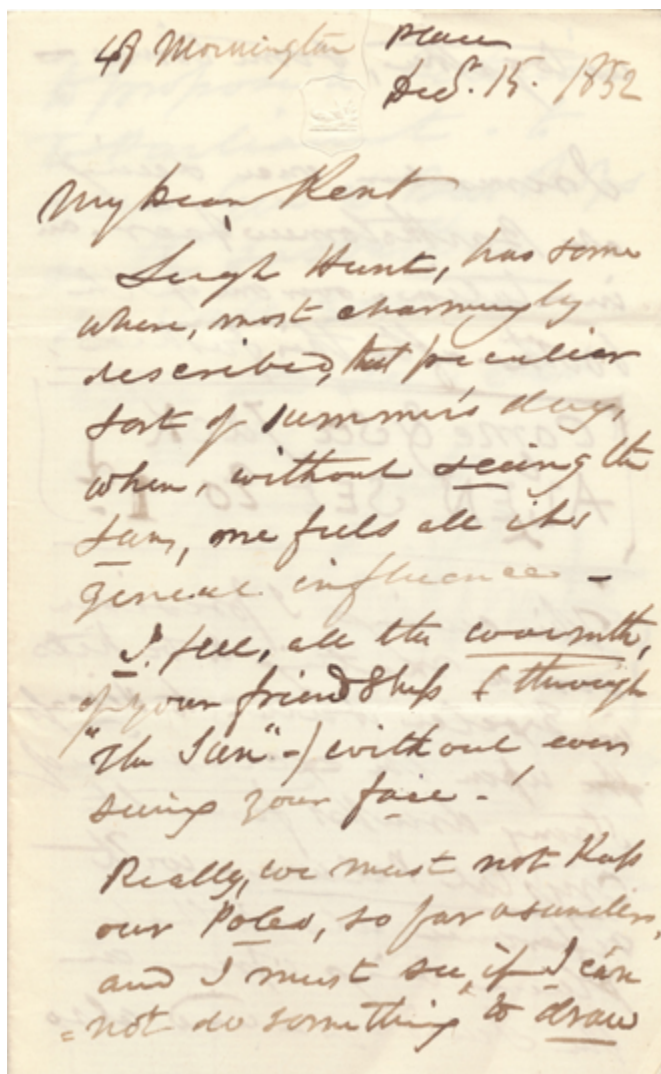 48 Mornington place
Decr. 15. 1852
My dear Kent
Leigh Hunt, has some
where, most charmingly
described, that peculiar
sort of summer's day,
when, without seeing the
sun, one feels all its
general influence -
I feel, all the warmth,
of your friendship (through
"The Sun" -) without, even
seeing your face -
Really, we must not keep
our Poles, so far asunder,
and I must see, if I can
not do something to draw